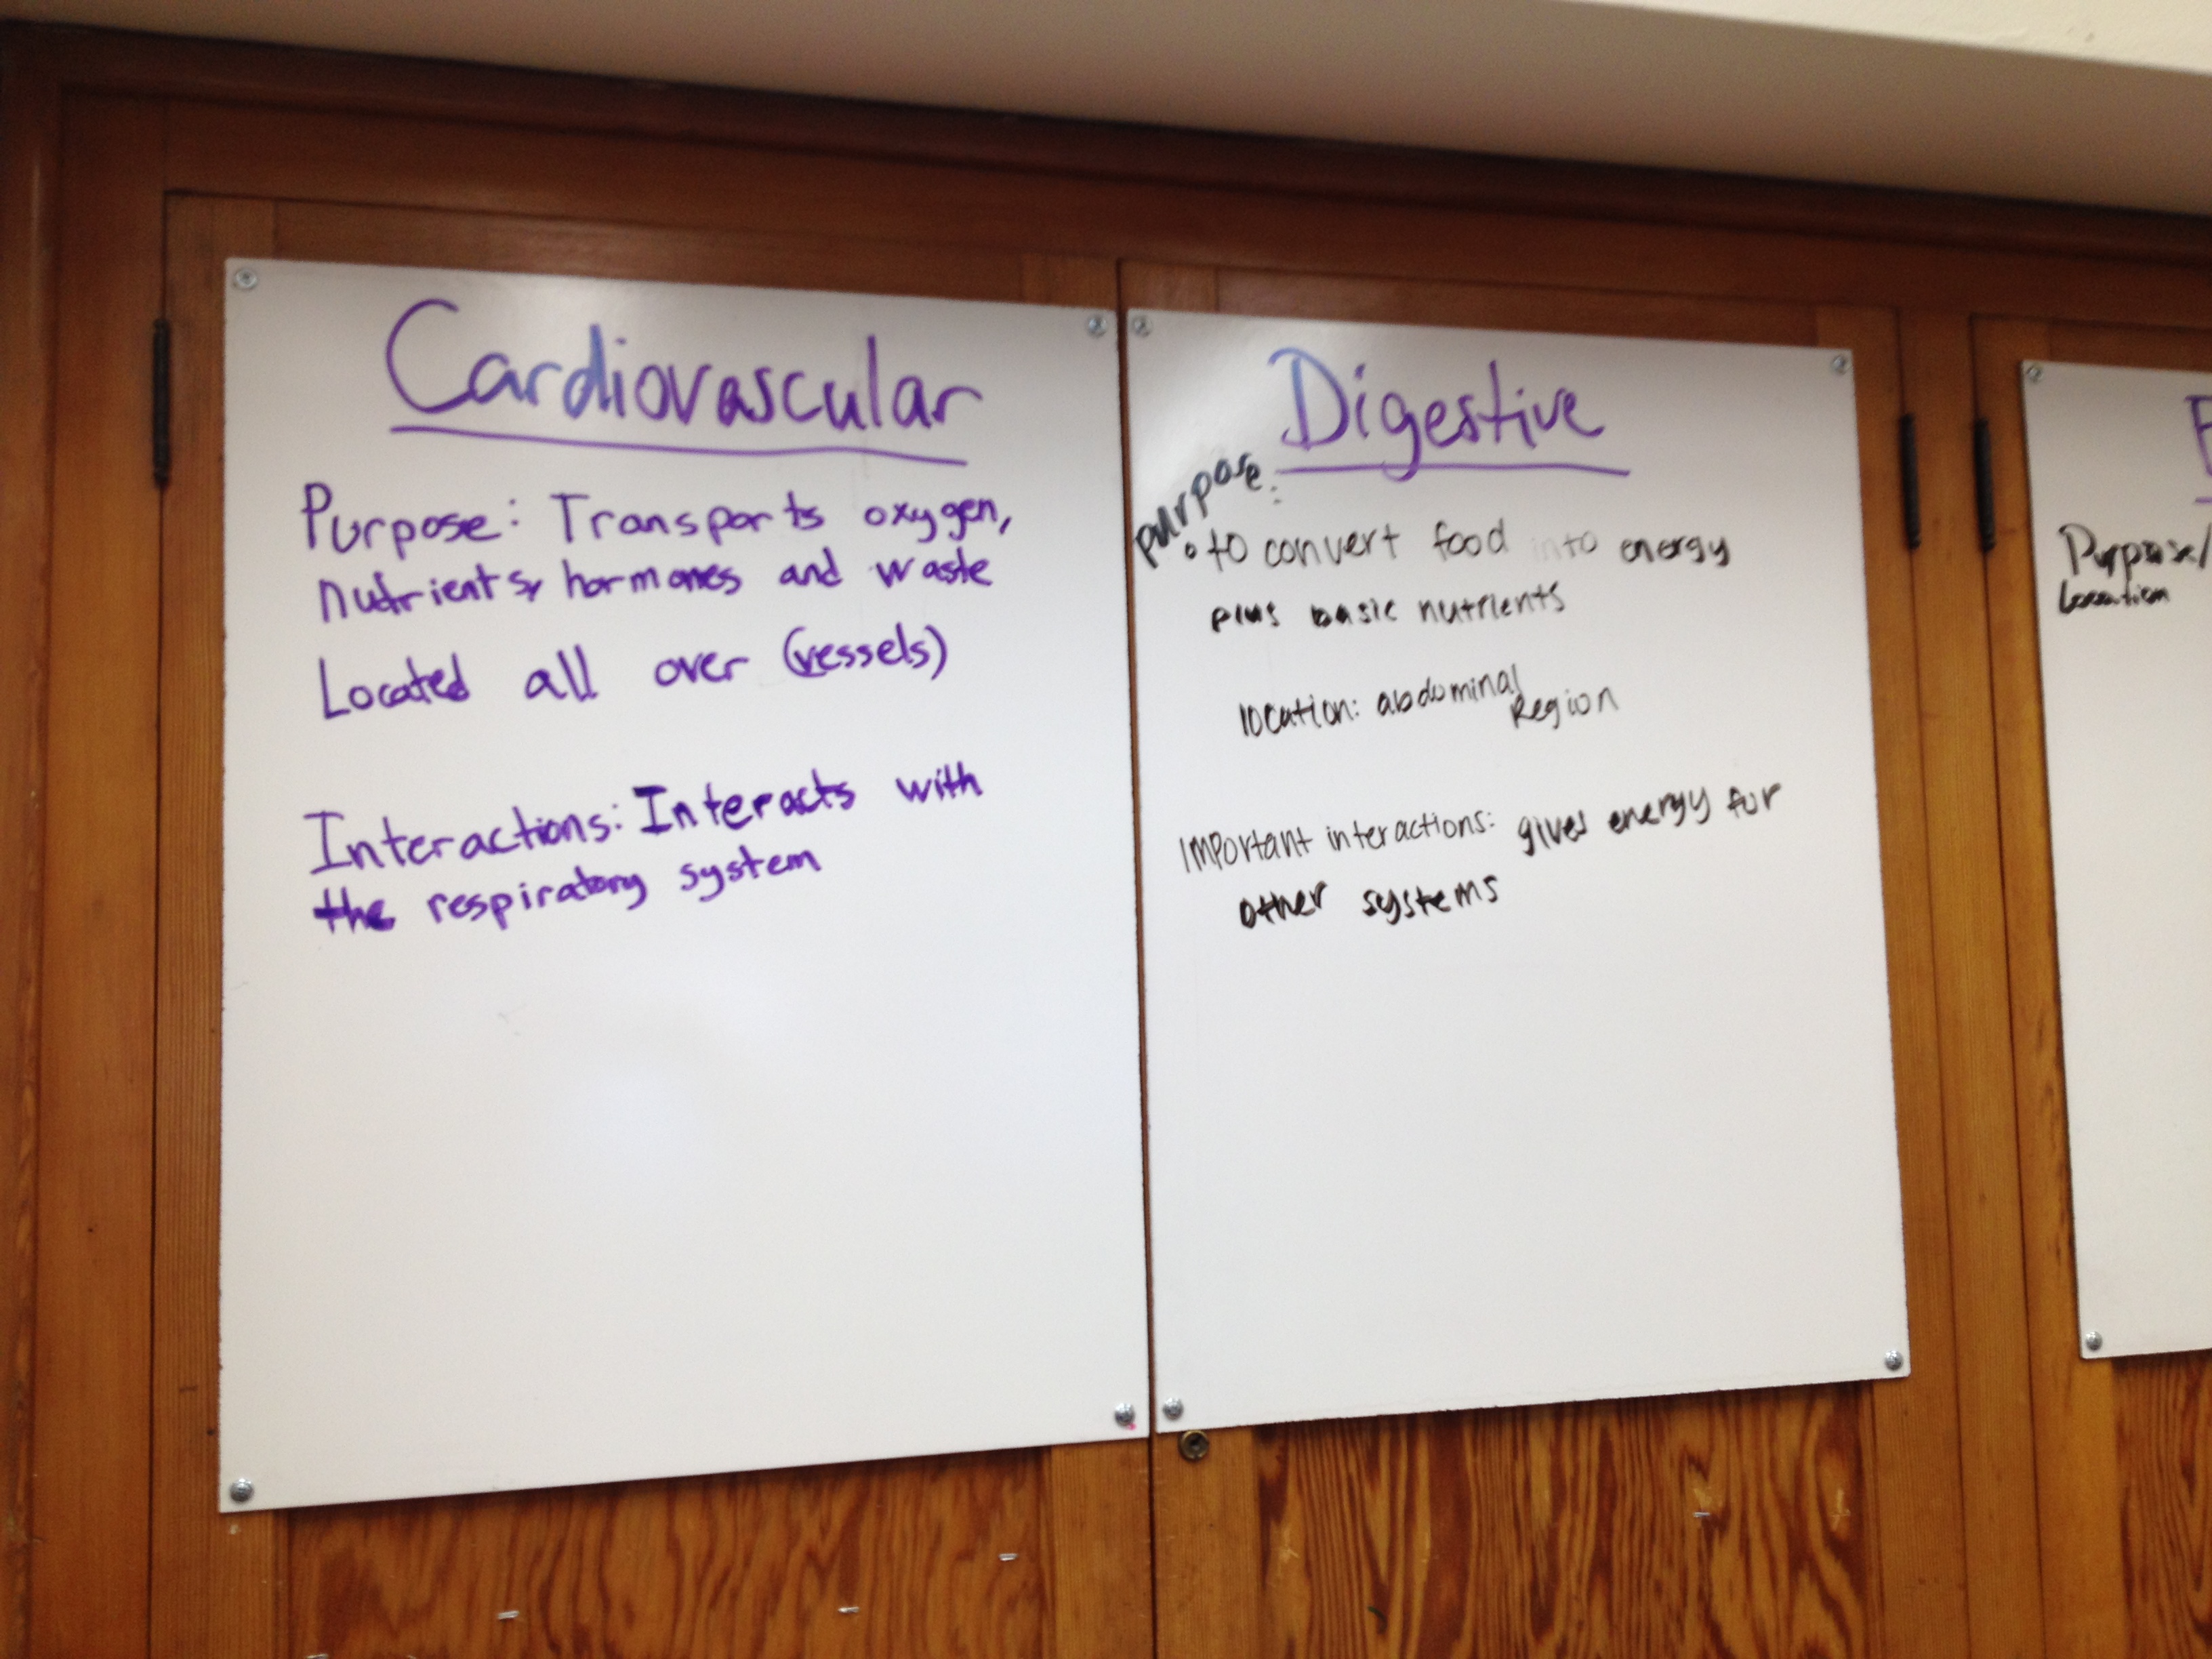 Cardiovascular
Purpose: Transports oxygen,
nutrients, hormones and waste
Located all over (vessels)
Interactions: Interacts with
the respiratory system
Digestive
purpose:
• to convert food into energy
plus basic nutrients
location: abdominal
Region
Important interactions: gives energy for
other systems
Purpose/
Location